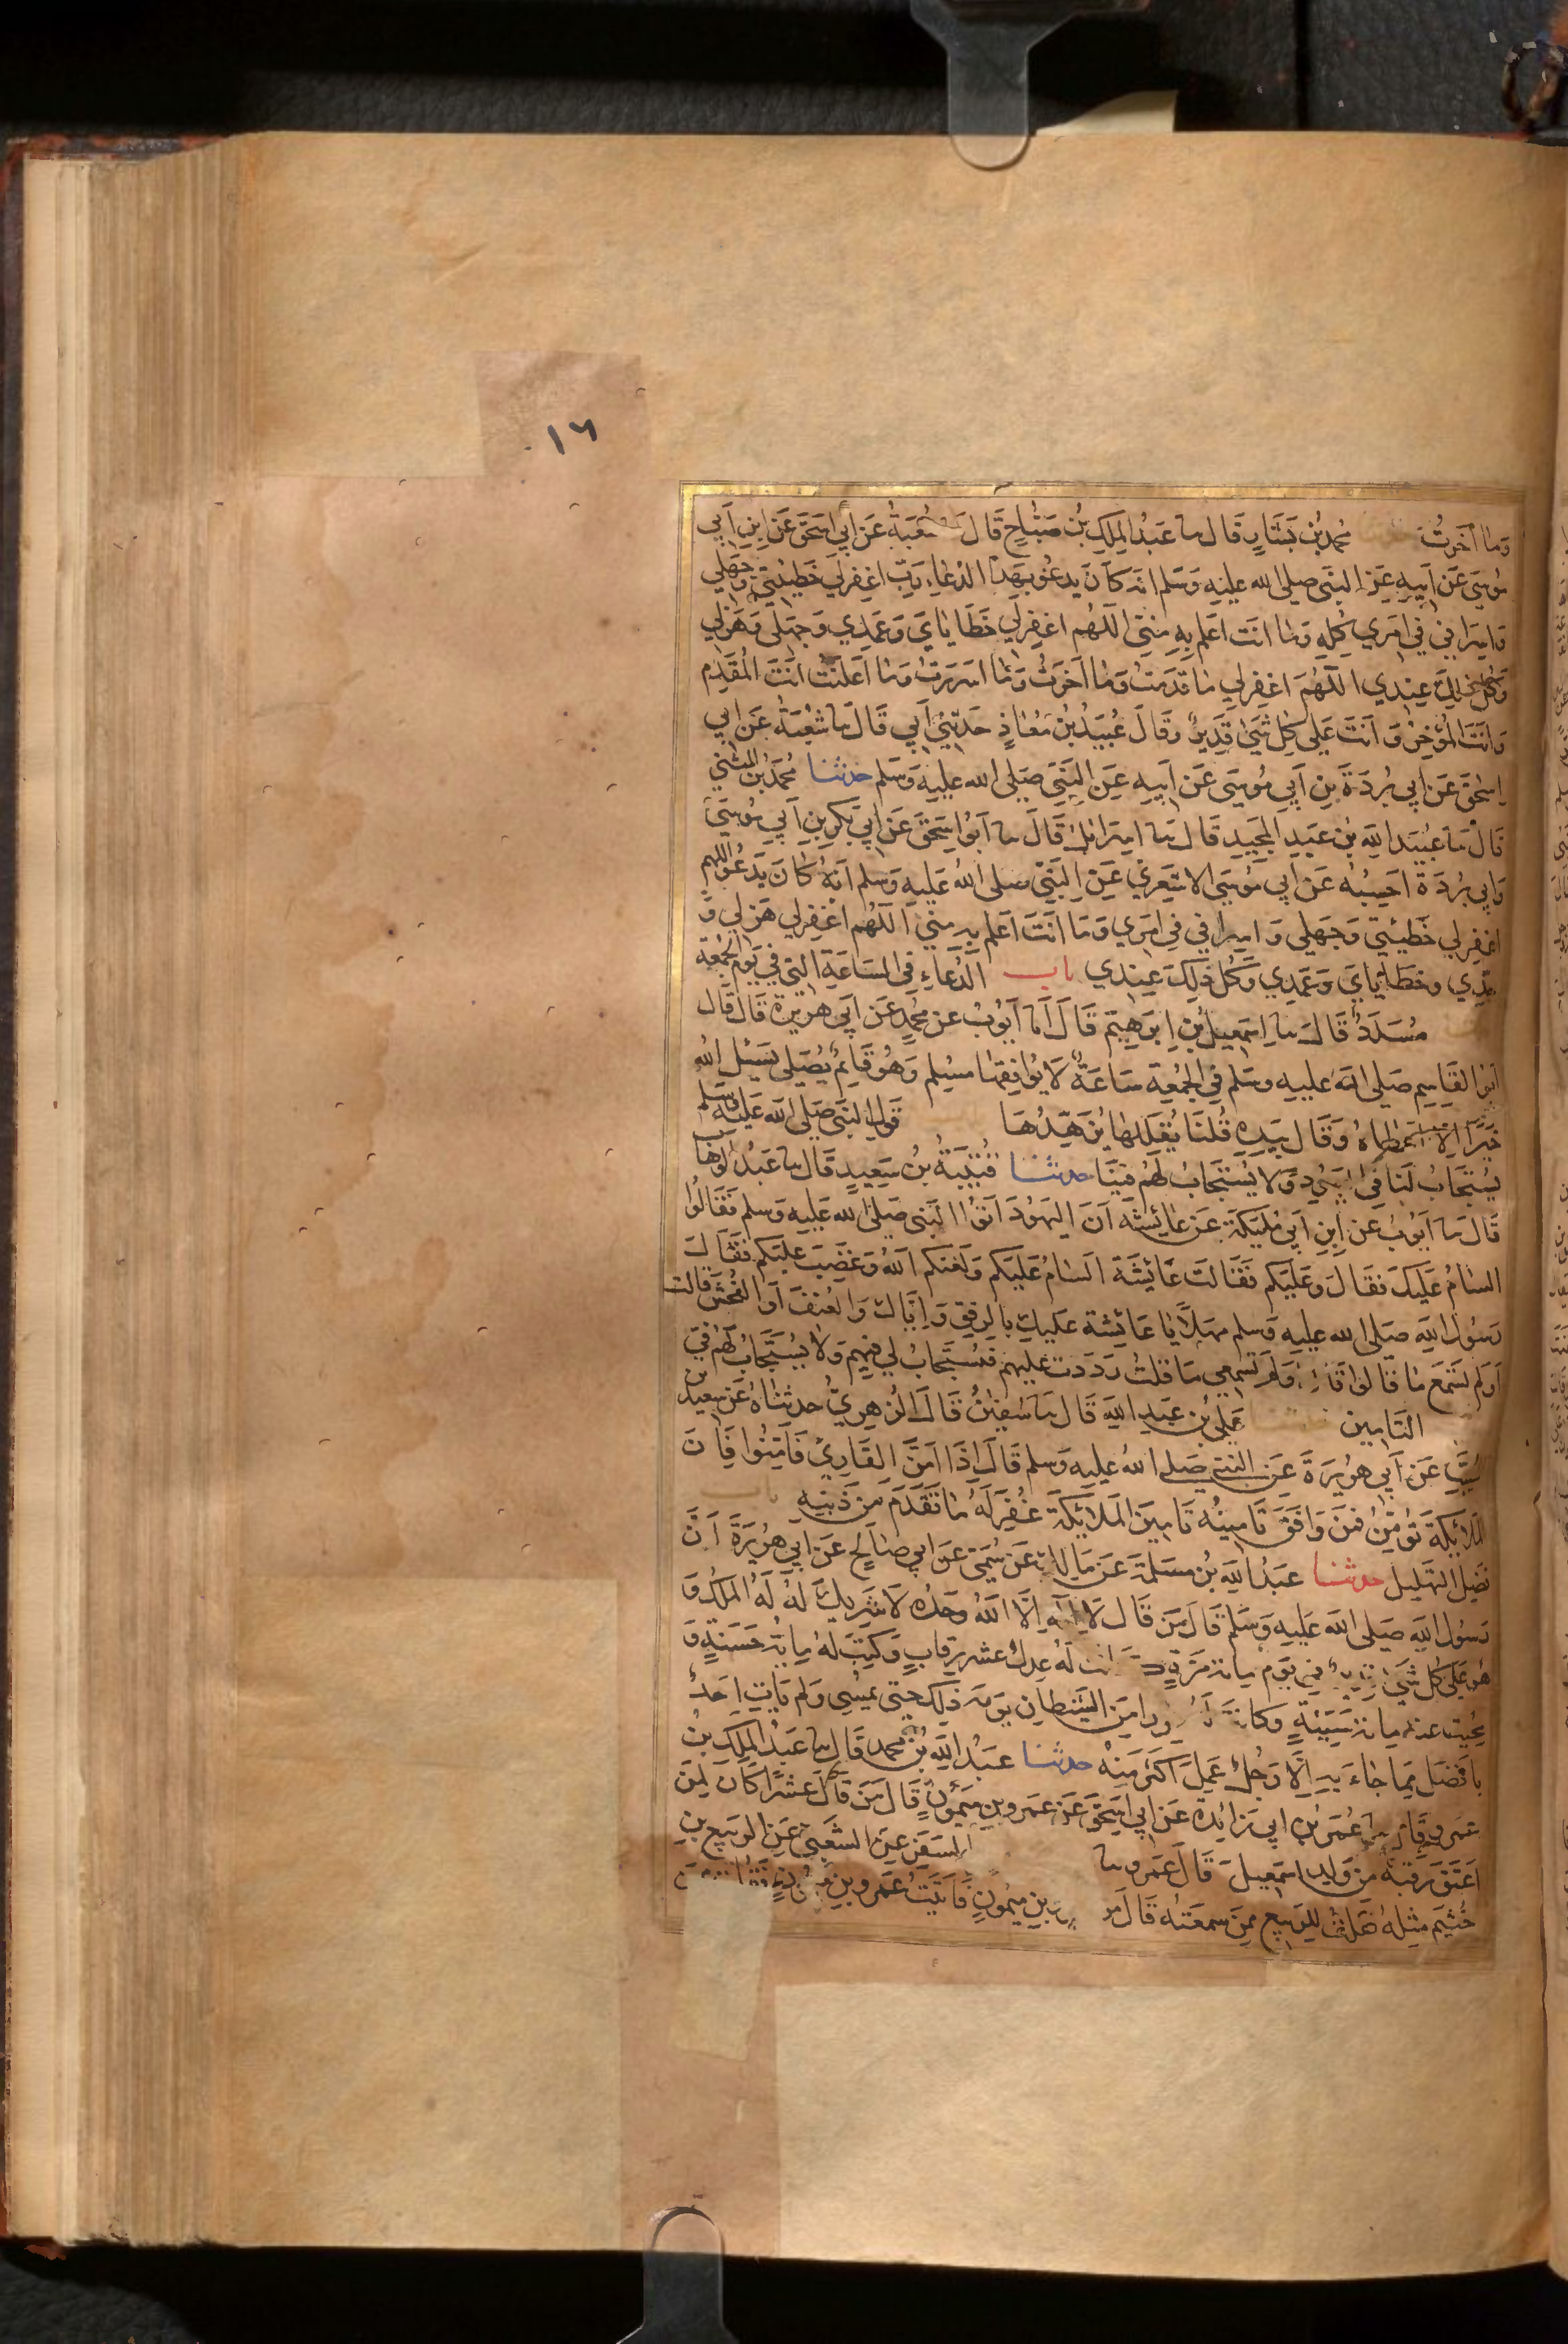 ١٦
وَما اَخَرتُ محمد بن بَشَارٍ قَال ىا عَبدُ المَلِكِ بنُ صَبّاحٍ قَالَ شعبَةُ عَن أَبي اسحَقَ عَن ابنِ أبي
مُوسَى عَن اَبيهِ عَن النَبي صلى الله عليهِ وَسَلم انهُ كاَنَ يَدعُو بهَذا الدُعاءِ رَبِّ اغفِر لي خَطيئتي وَجَهلي
وَاِسرَافي في امري كُلِهِ وَما انتَ اَعلم بهِ مني اللهُم اغفِر لي خَطَاياىَ وَعَمدِي وَجهلى وَهَزلي
وَكُل ذلِكَ عِندي اللهُمَ اغفِر لي ما قدَمتُ وَما اخَرتُ وَمَا اسرَرتُ وَما اَعلنتُ انتَ المُقَدِم
وَانتَ المؤخِرُ وَانتَ عَلى كلِ شَئ قَدِيرٌ وقَالَ عُبَيدُ بنُ مُعَاذٍ حَدثني أبي قَالَ ىا شُعبَةُ عَن ابي
اِسحَقَ عَن ابي بُردَةَ بنِ اَبي مُوسَى عَن اَبيهِ عَن النبَي صَلى الله عليهِ وَسَلم حدثنا محمدُ بن المثنى
قَالَ ىا عُبَيدُ اللهِ بن عَبدِ المجيدِ قَال ىا اِسرائيلُ قَالَ ىا اَبوُ اِسحَقَ عَن ابي بَكرِ بنِ أبي مُوسى
وَابي بُردَةَ احسِبُه عَن ابي مُوسَى الاشعَري عَن النبَي صلى اللهُ عَليهِ وَسلم انَهُ كَانَ يَدعُو اللهم
اغفِر لي خَطيئتي وَجَهلي وَاِسرافي في امري وَمَا انتَ اَعلم بهِ مني اللهُم اغفِر لي هَزلي وَ
جدّي وخطَاياىَ وَعَمدِي وَكُل ذلِكَ عِندي باب الدُعاءِ في الساعَةِ التي في يَوم الجمعة
مُسَدَدٌ قَالَ ىا اِسمَعِيلُ بن اِبرَهِيم قَالَ اَنا اَيُوبُ عن محمدٍ عَن اَبي هرَيرة قَالَ قال
ابُو القَاسِم صَلى الله عليهِ وسَلم في الجمُعَةِ سَاعَةٌ لا يُوافِقهَا مسُلم وَهُو قَائِمٌ يُصَلى يَسئَل الله
خَيرًا اِلا اَعطاهُ وَقَال بيَدِهِ قُلنَا يُقَلِلهَا يُزَهِّدُهَا قَول النبَي صَلى الله عَليهِ وسلم
يُستجَابُ لَنَا في اليَهُودِ وَلا يُستجَابُ لهُم فينَا حدثنا قُتيبَةُ بنُ سَعِيدٍ قَال ىا عَبدُ الوَهاب
قَالَ ىا ايَوُبُ عن ابنِ اَبي مُلَيكَةَ عَن عَائِشَة اَنَ اليهُودَ اتوُا النَبي صَلى الله عَليهِ وَسلم فقَالوُا
السَامُ عَليكَ فقَالَ وَعَليكم فقَالت عَائِشَة السَامُ عَليكم وَلعَنكم اللهُ وَغَضِبَ عَليكم فقَالَ
رَسُول اللهِ صَلى الله عليهِ وَسلم مهلاً يا عَائِشة عَليكِ بالرفقِ وَاِيَّاكِ وَالعُنفَ اَو الفُحشَ قالت
اَوَلم تسَمَع مَا قَالوُا قَالَ اوَلم تسمَعِي مَا قلتُ رَدَدتُ عَليهم فيُستجَابُ لي فيهِم وَلا يُستجَابُ لَهُم فيَّ
التَامِين عَلي بنُ عَبدِ اللهِ قَال ىا سُفيَنُ قَالَ الزهِريُّ حدثناهُ عَن سعيد بن
المُسَيّب عَن اَبي هُريرَةَ عَن النبي صَلى الله عليهِ وَسلم قَالَ اِذَا اَمَّنَ القَارِئُ فَاَمِّنُوا فَاِنَ
المَلائِكَةَ تُؤمِّنُ فمَن وَافقَ تَامينُه تَامِينَ المَلائِكَةِ غُفِرَ لَهُ مَا تَقَدَمَ مِن ذَنبِهِ باب
فضل التهليل حدثنا عَبدُ اللهِ بن مَسلمَةَ عَن مَالِكٍ عَن سُمَيّ عَن ابي صَالحٍ عَن ابي هُريرَةَ اَنَّ
رَسُولَ اللهِ صَلى الله عَليهِ وَسَلم قَالَ مَن قَال لا اِلهَ اِلَا اللهُ وَحدَه لا شَرِيكَ لَهُ لَهُ المُلك وَ
هُو عَلى كُل شَئ قديرٌ في يَوم مِائة مَرةٍ كانت لَه عِدلُ عشرِ رِقابٍ وَكُتِبَ لَهُ مِائةُ حَسَنةٍ وَ
مُحيت عنه مِائة سَيئةٍ وكانت لَهُ من الشَيطانِ يومَه ذلِكَ حتى يمسِي وَلم يَاتِ اَحَدٌ
باَفضَلَ مِمَا جَاءَ بهِ اِلا رَجُلٌ عَمِلَ اَكثَر مِنهُ حدثنا عَبدُ اللهِ بنُ محمدٍ قَال ىا عَبدُ المَلِكِ بنُ
عَمرو قَال ىا عُمَرُ بن ابي زَائِدة عَن ابي اِسحَقَ عَن عَمرو بنِ مَيمُونٍ قَالَ مَن قَالَ عَشرًا كانَ كَمَن
اَعتَقَ رَقبَةً مِن وَلدِ اِسمَعِيلَ قَالَ عَمرو ىا السَفرِ عَن الشَعبي عَن الرَبيعِ بنِ
خُثيَم مِثلَهُ فقلتُ للرَبيعِ مِمَن سمعتَه قَالَ من بنِ مَيمُونٍ فَاتَيتُ عَمرو بنِ